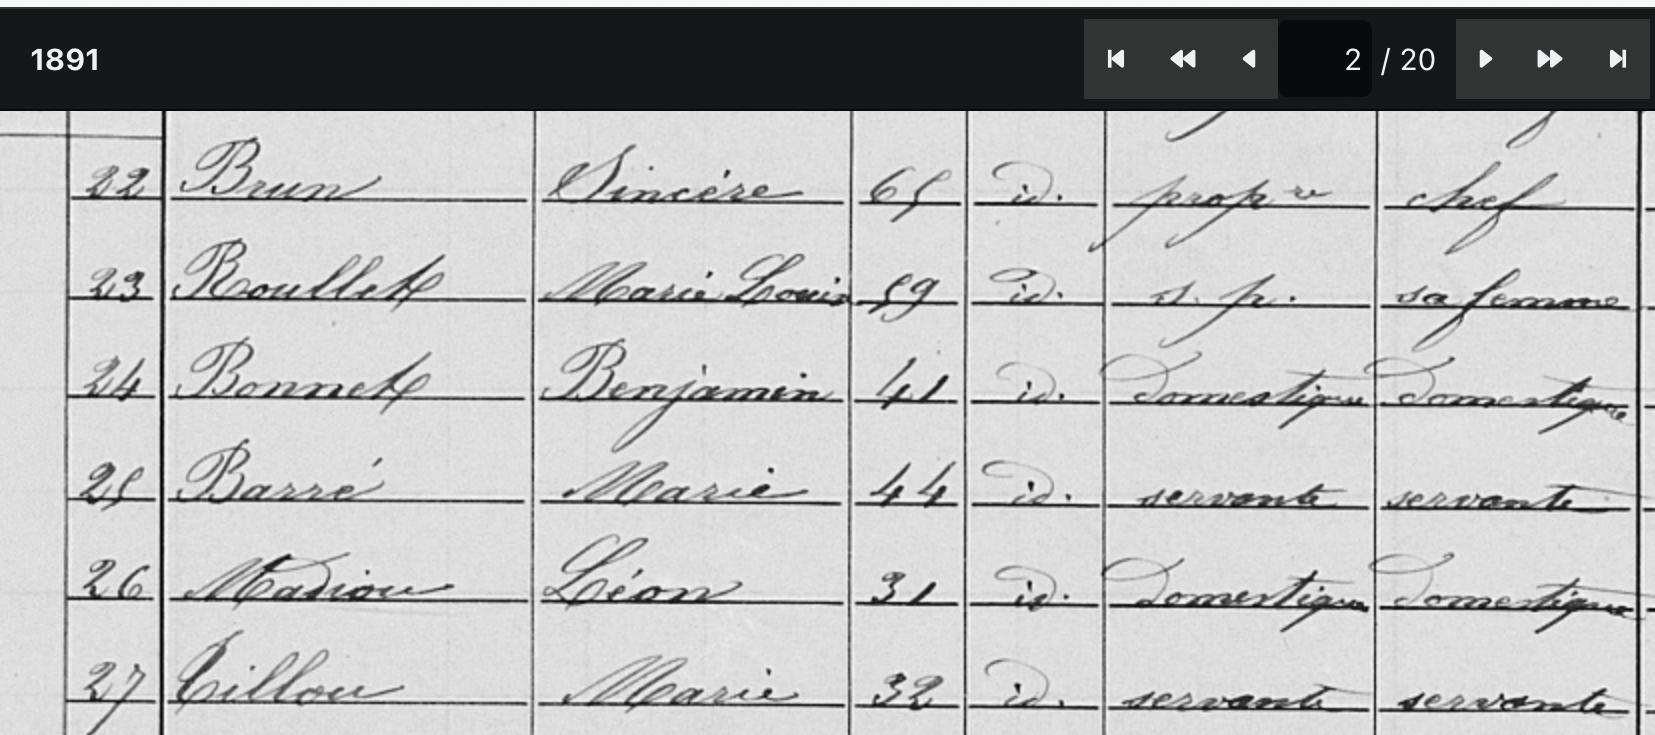 1891 2 / 20
22 Brun Sincère 65 id. propre chef
23 Roullet Marie Louise 59 id. s. p. sa femme
24 Bonnet Benjamin 41 id. domestique domestique
25 Barré Marie 44 id. servante servante
26 Madiou Léon 31 id. domestique domestique
27 Tillou Marie 32 id. servante servante